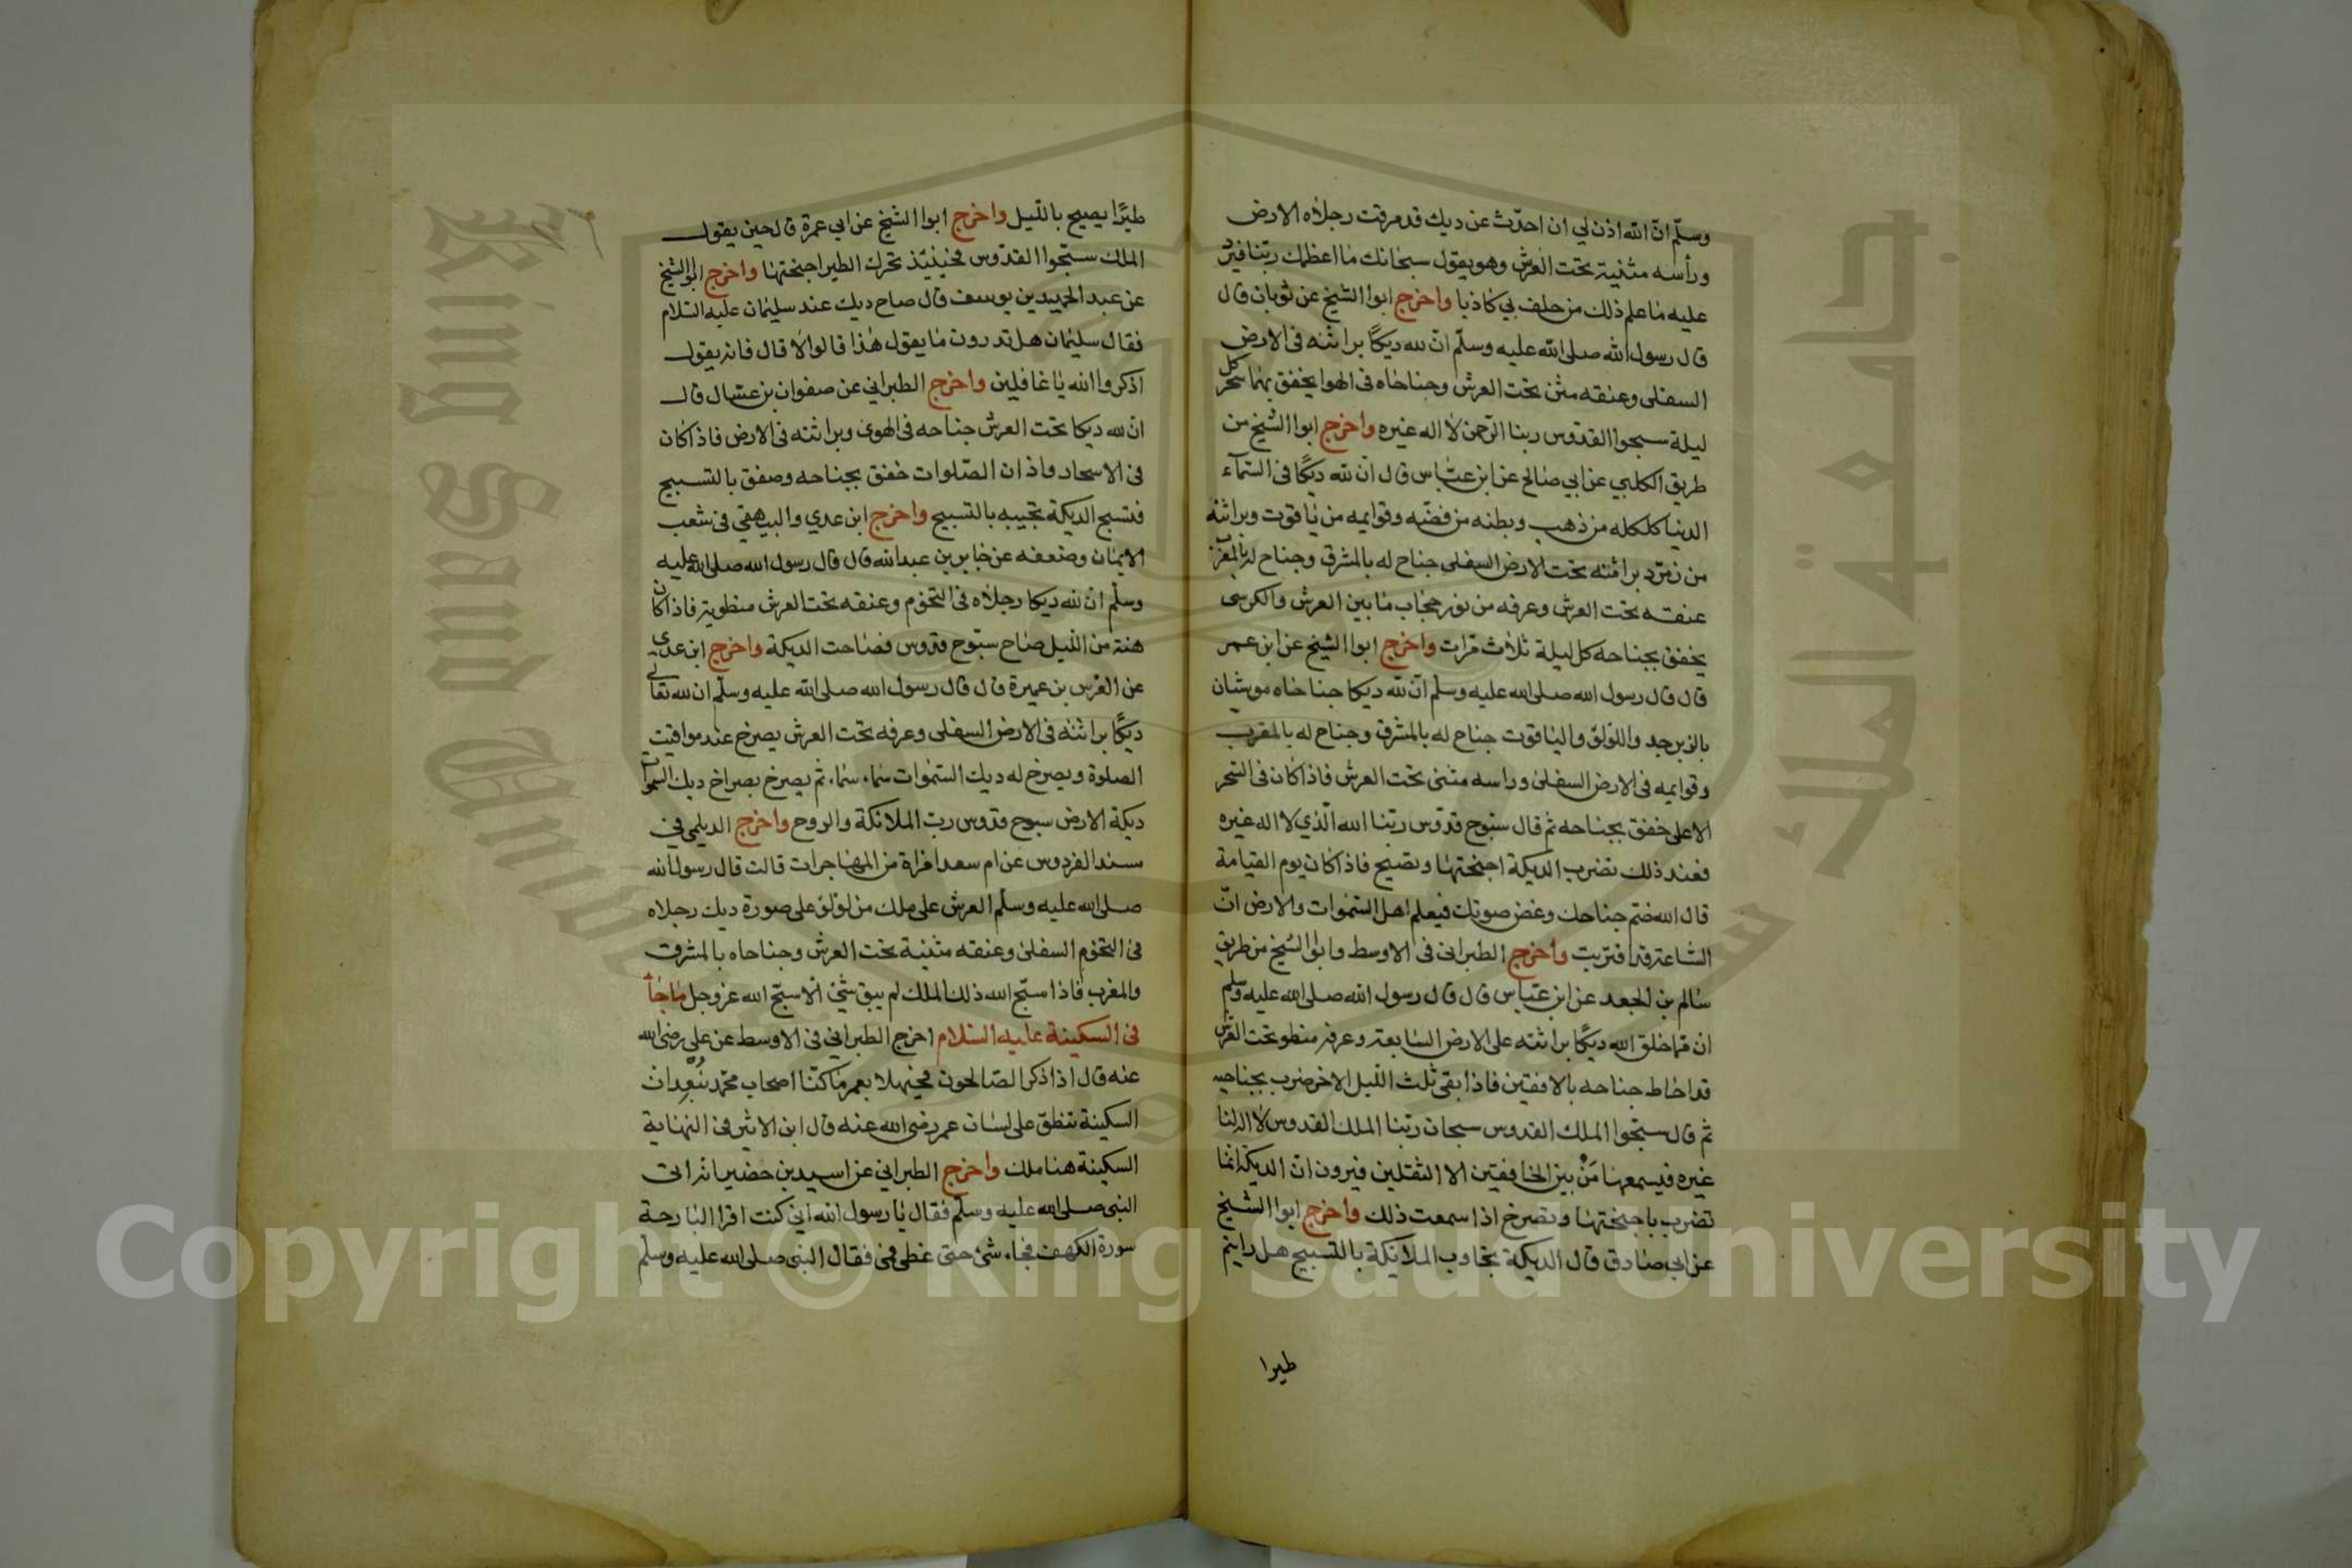 وسلّم انّ الله اذن لي ان احدّث عن ديك قد مرقت رجلاه الارض
ورأسه مثنية تحت العرش وهو يقول سبحانك ما اعظمك ربّنا فيرد
عليه ما علم ذلك من حلف بي كاذبا واخرج ابوا الشيخ عن ثوبان قال
قال رسول الله صلى الله عليه وسلّم انّ لله ديكًا براثنه في الارض
السفلى وعنقه مثن تحت العرش وجناحاه في الهوا يخفق بهما سحر كل
ليلة سبحوا القدّوس ربنا الرّحمن لا اله غيره واخرج ابوا الشيخ من
طريق الكلبي عن ابي صالح عن ابن عبّاس قال انّ لله ديكًا في السّمآء
الدنيا كلكله من ذهب وبطنه من فضّه وقوايمه من ياقوت وبراثنه
من زمرّد براثنه تحت الارض السفلى جناح له بالمشرق وجناح له بالمغرب
عنقه تحت العرش وعرفه من نور حجاب ما بين العرش والكرسى
يخفق بجناحه كل ليلة ثلاث مرات واخرج ابوا الشيخ عن ابن عمر
قال قال رسول الله صلى الله عليه وسلّم انّ لله ديكا جناحاه موشيان
بالزبرجد واللؤلؤ والياقوت جناح له بالمشرق وجناح له بالمغرب
وقوايمه في الارض السفلى وراسه مثنى تحت العرش فاذا كان في السّحر
الاعلى خفق بجناحه ثم قال سبّوح قدّوس ربّنا الله الّذي لا اله غيره
فعند ذلك تضرب الديكة اجنحتها وتصيح فاذا كان يوم القيامة
قال الله ضم جناحك وغض صوتك فيعلم اهل السّموات والارض انّ
السّاعة قد اقتربت واخرج الطبرانى في الاوسط وابوا الشيخ من طريق
سالم بن الجعد عن ابن عبّاس قال قال رسول الله صلى الله عليه وسلم
ان مما خلق الله ديكًا براثنه على الارض السّابعة وعرفه منطو تحت العرش
قد احاط جناحه بالافقين فاذا بقى ثلث اللّيل الاخر ضرب بجناحيه
ثم قال سبّحوا الملك القدوس سبحان ربّنا الملك القدوس لا اله لنا
غيره فيسمعها مَنْ بين الخافقين الا الثقلين فيرون انّ الديكة انما
تضرب باجنحتها وتصرخ اذا سمعت ذلك واخرج ابوا الشيخ
عن ابي صادق قال الديكة تجاوب الملائكة بالتسبيح هل رايتم
طيرا
طيرًا يصيح باللّيل واخرج ابوا الشيخ عن ابي عمرة قال حين يقول
الملك سبّحوا القدّوس فحينئيذ تحرك الطير اجنحتها واخرج ابوا الشيخ
عن عبد الحميد بن يوسف قال صاح ديك عند سليمان عليه السّلام
فقال سليمان هل تدرون ما يقول هذا قالوا لا قال فانه يقول
اذكروا الله يا غافلين واخرج الطبراني عن صفوان بن عسّال قال
انّ لله ديكا تحت العرش جناحه في الهوى وبراثنه في الارض فاذا كان
في الاسحار واذان الصّلوات خفق بجناحه وصفق بالتسبيح
فتسبح الديكة تجيبه بالتسبيح واخرج ابن عدي والبيهقي في شعب
الايمان وضعفه عن جابر بن عبد الله قال قال رسول الله صلى الله عليه
وسلّم انّ لله ديكا رجلاه في التخوم وعنقه تحت العرش منطوية فاذا كان
هنة من اللّيل صاح سبّوح قدّوس فصاحت الديكة واخرج ابن عدي
عن العرس بن عميرة قال قال رسول الله صلى الله عليه وسلّم ان لله تعالى
ديكًا براثنه في الارض السفلى وعرفه تحت العرش يصرخ عند مواقيت
الصلوة ويصرخ له ديك السّموات سماء سماء ثم يصرخ بصراخ ديك السموات
ديكة الارض سبوح قدّوس ربّ الملائكة والروح واخرج الديلمي في
سند الفردوس عن ام سعد امراة من المهاجرات قالت قال رسول الله
صلى الله عليه وسلّم العرش على ملك من لؤلؤ على صورة ديك رجلاه
في التخوم السفلى وعنقه مثنية تحت العرش وجناحاه بالمشرق
والمغرب فاذا سبّح الله ذلك الملك لم يبق شئ الا سبّح الله عز وجل ما جاء
في السكينة عليه السّلام اخرج الطبراني في الاوسط عن علي رضى الله
عنه قال اذا ذكر الصّالحون فحيهلا بعمر ما كنّا اصحاب محمّد نُبعد انّ
السكينة تنطق على لسان عمر رضى الله عنه قال ابن الاثير في النهاية
السكينة هنا ملك واخرج الطبراني عن اسيد بن حضير انه اتى
النبي صلى الله عليه وسلّم فقال يا رسول الله انّي كنت اقرا البارحة
سورة الكهف فجاء شئ حتى غطى فمى فقال النبي صلى الله عليه وسلّم
جامعة الملك سعود
King Saud University
Copyright © King Saud University